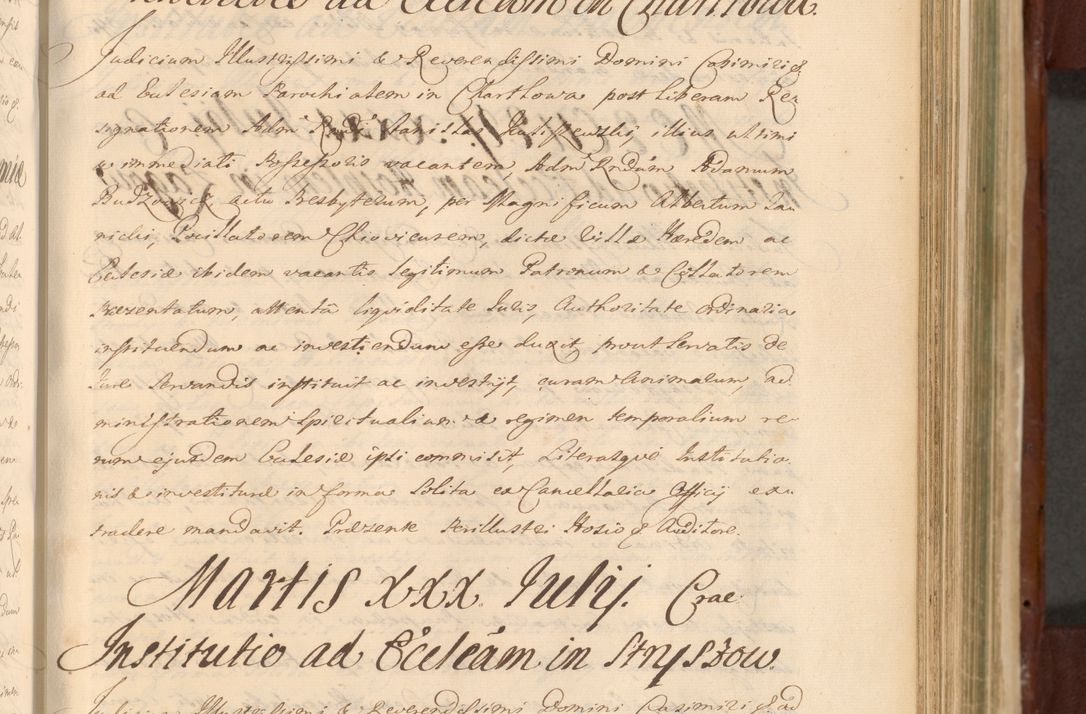 ad Ecleām in Charłłowa.
Judicium Illustrissimi & Reverendissimi Domini Casimiri &
ad Eclesiam Parochialem in Charłłowa post liberam Re,
signationem Adm Rndi Stanislai illius ultimi
& immediati Possessoris vacantem, Adm Rndum Adamum
Budzowicz actu Presbyterum, per Magnificum Albertum Ja,
nicki Pocillatorem Chioviensem, dictæ Villæ Hæredem ac
Eclesiæ ibidem vacantis legitimum Patronum & Collatorem
Præzentatum, attentâ liquiditate Juris, Authoritate ordinaria
instituendum ac investiendum esse duxit, prout servatis de
Jure servandis instituit ac investijt, curam animarum, ad
ministrationem spiritualium & regimen temporalium re,
rum ejusdem Eclesiæ ipsi commisit, Literasque Institutio,
nis & investituræ in forma solita ex Cancellaria Officij ex,
tradere mandavit. Præzente Perillustri Hosio & Auditore.
Martis XXX. Julij. Crac:
Institutio ad Ecleām in Stryszow.
Judicium Illustrissimi & Reverendissimi Domini Casimiri & ad